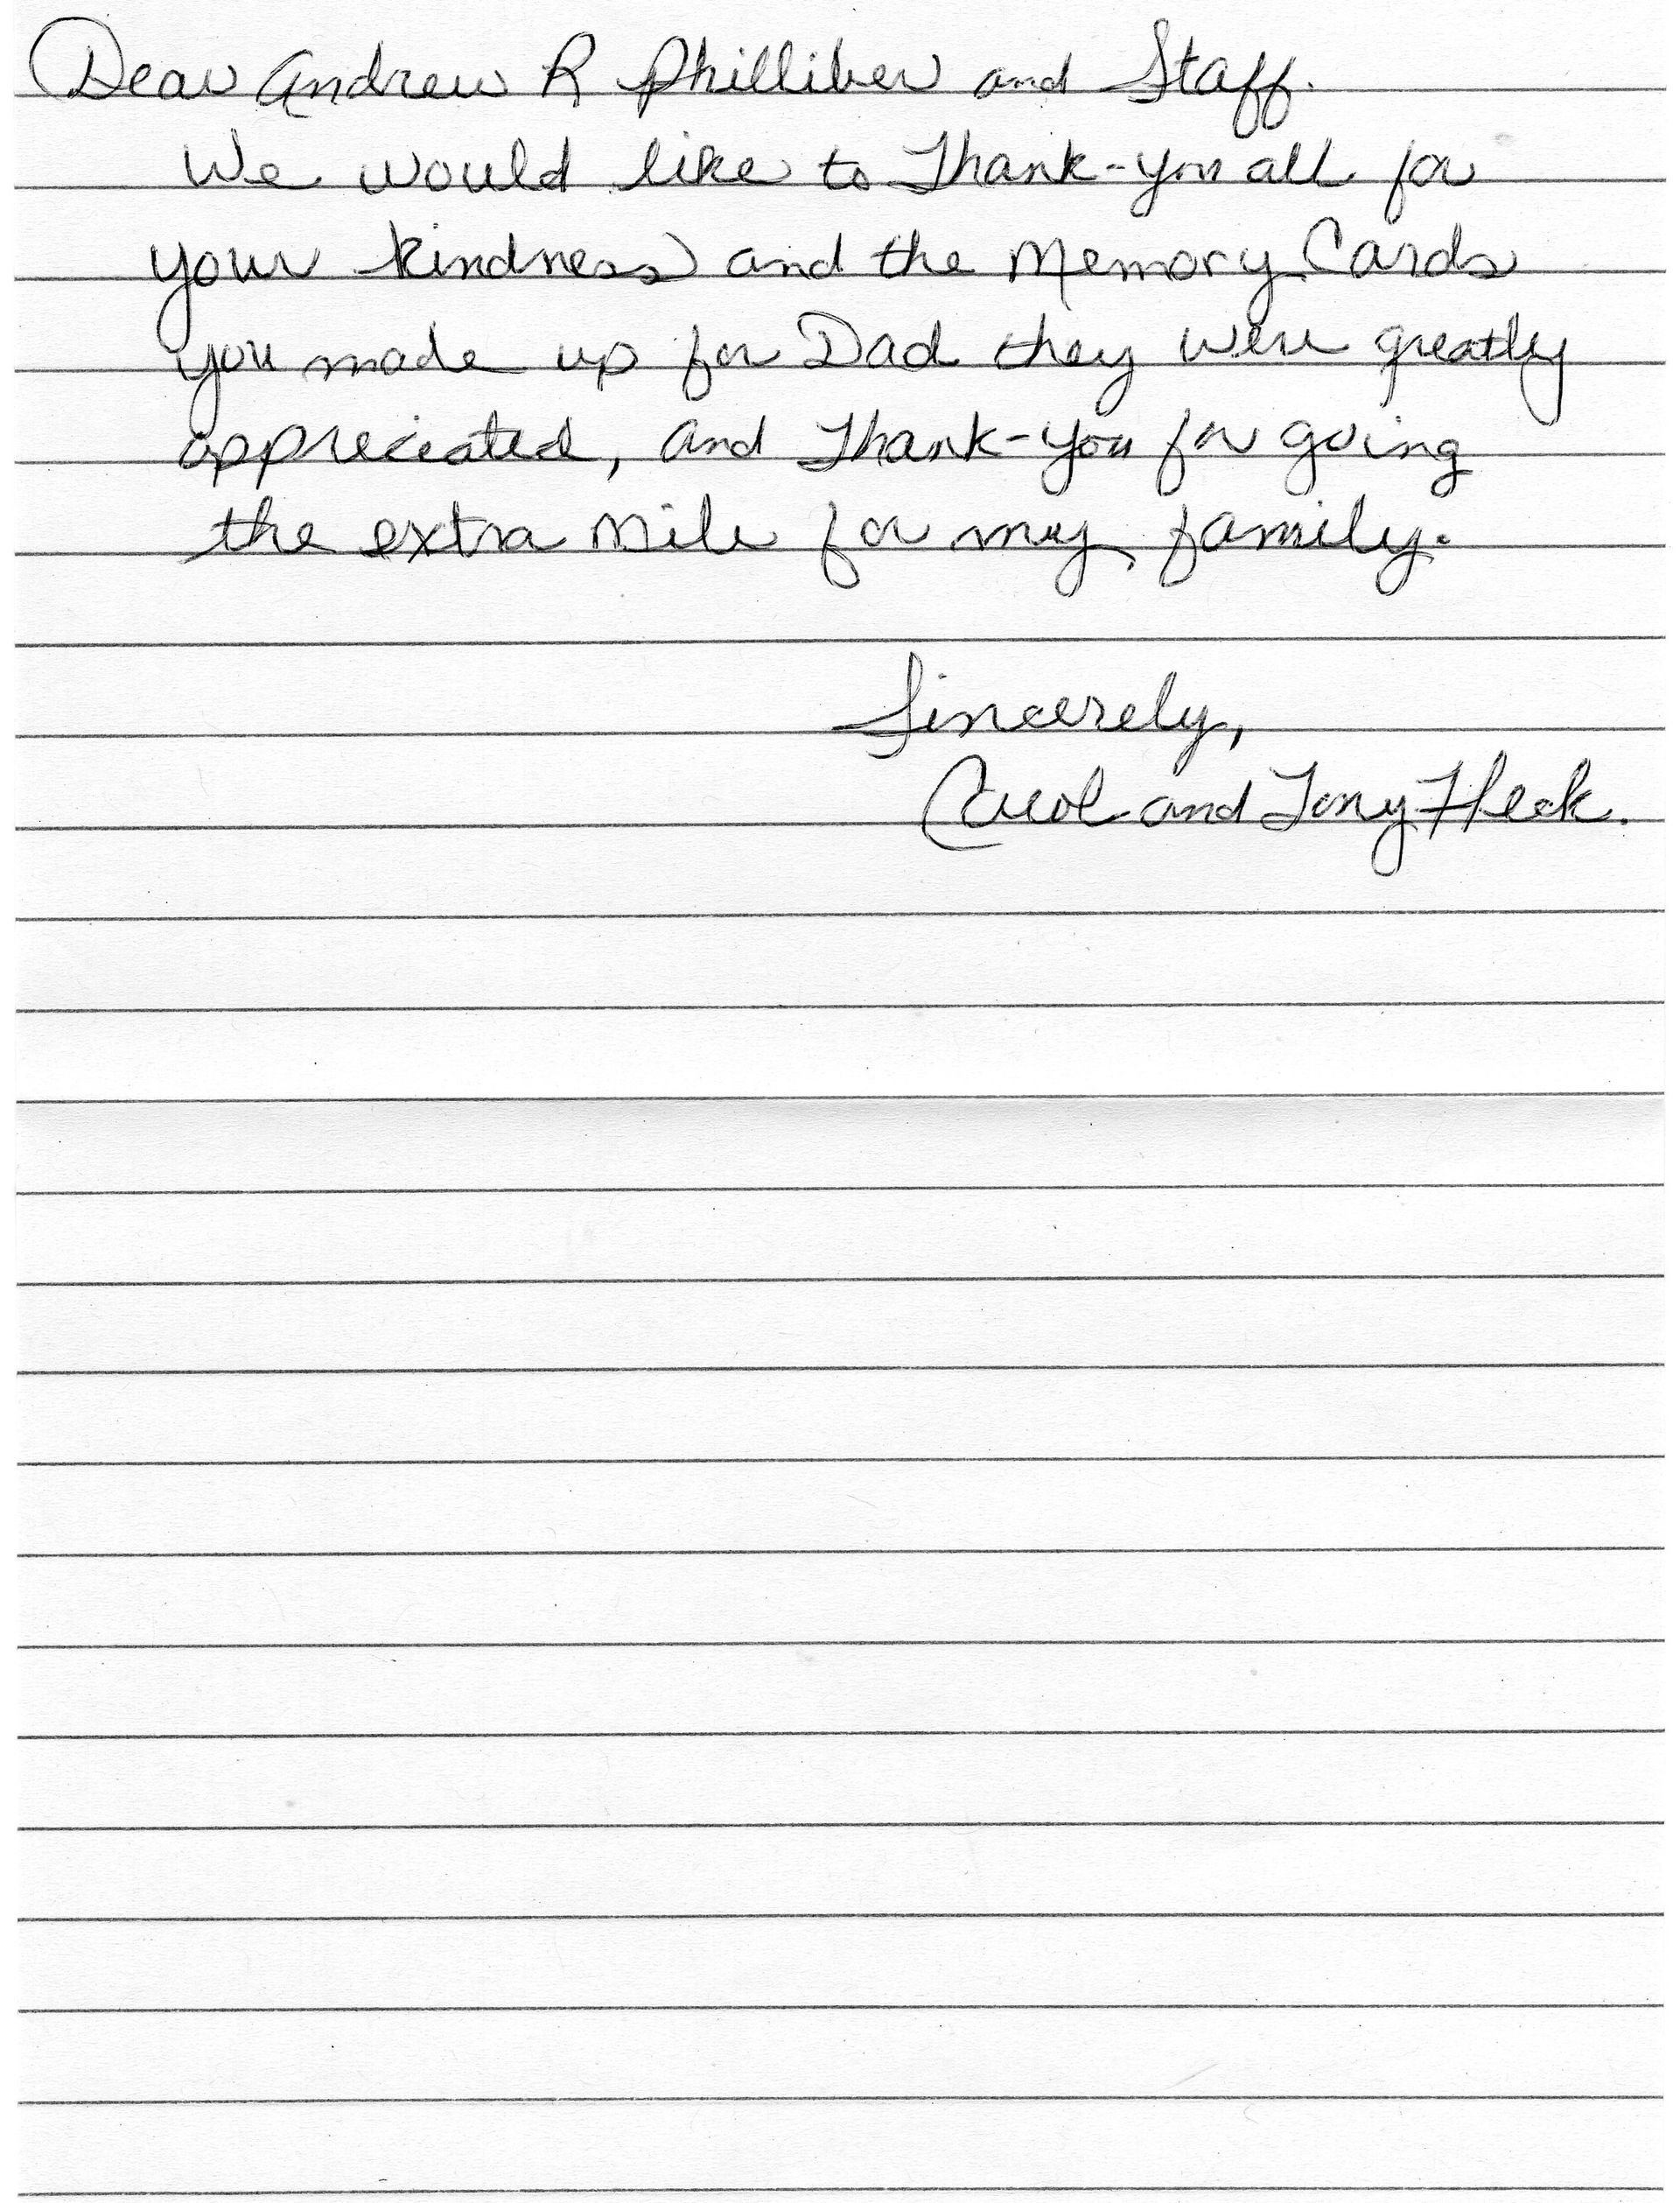 Dear Andrew R Philliber and Staff.
We would like to Thank-you all for
your kindness and the Memory Cards
you made up for Dad they were greatly
appreciated, and Thank-you for going
the extra mile for my family.
Sincerely,
Carol and Tony Fleck.